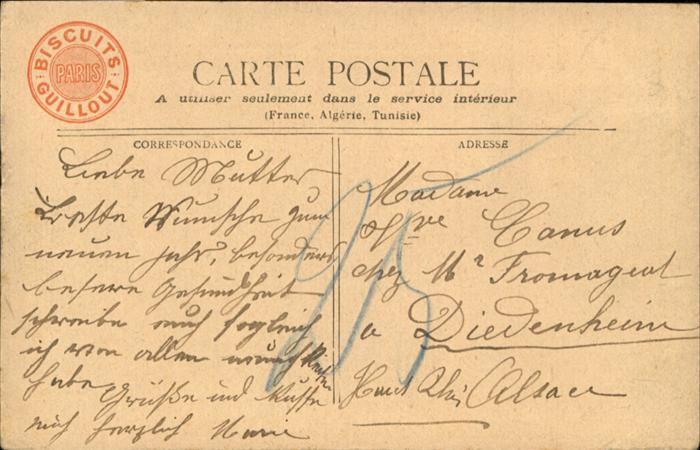 BISCUITS
PARIS
GUILLOUT
CARTE POSTALE
A utiliser seulement dans le service intérieur
(France, Algérie, Tunisie)
CORRESPONDANCE
Liebe Mutter,
Beste Wünsche zum
neuen Jahr, besonders
bessere Gesundheit
schreibe auch sogleich
ich von allen
habe
Grüße und Küsse
herzlich Marie
ADRESSE
Madame
Vve Canus
chez Mr Fromageat
a Diedenheim
Haut Rhin Alsace
25